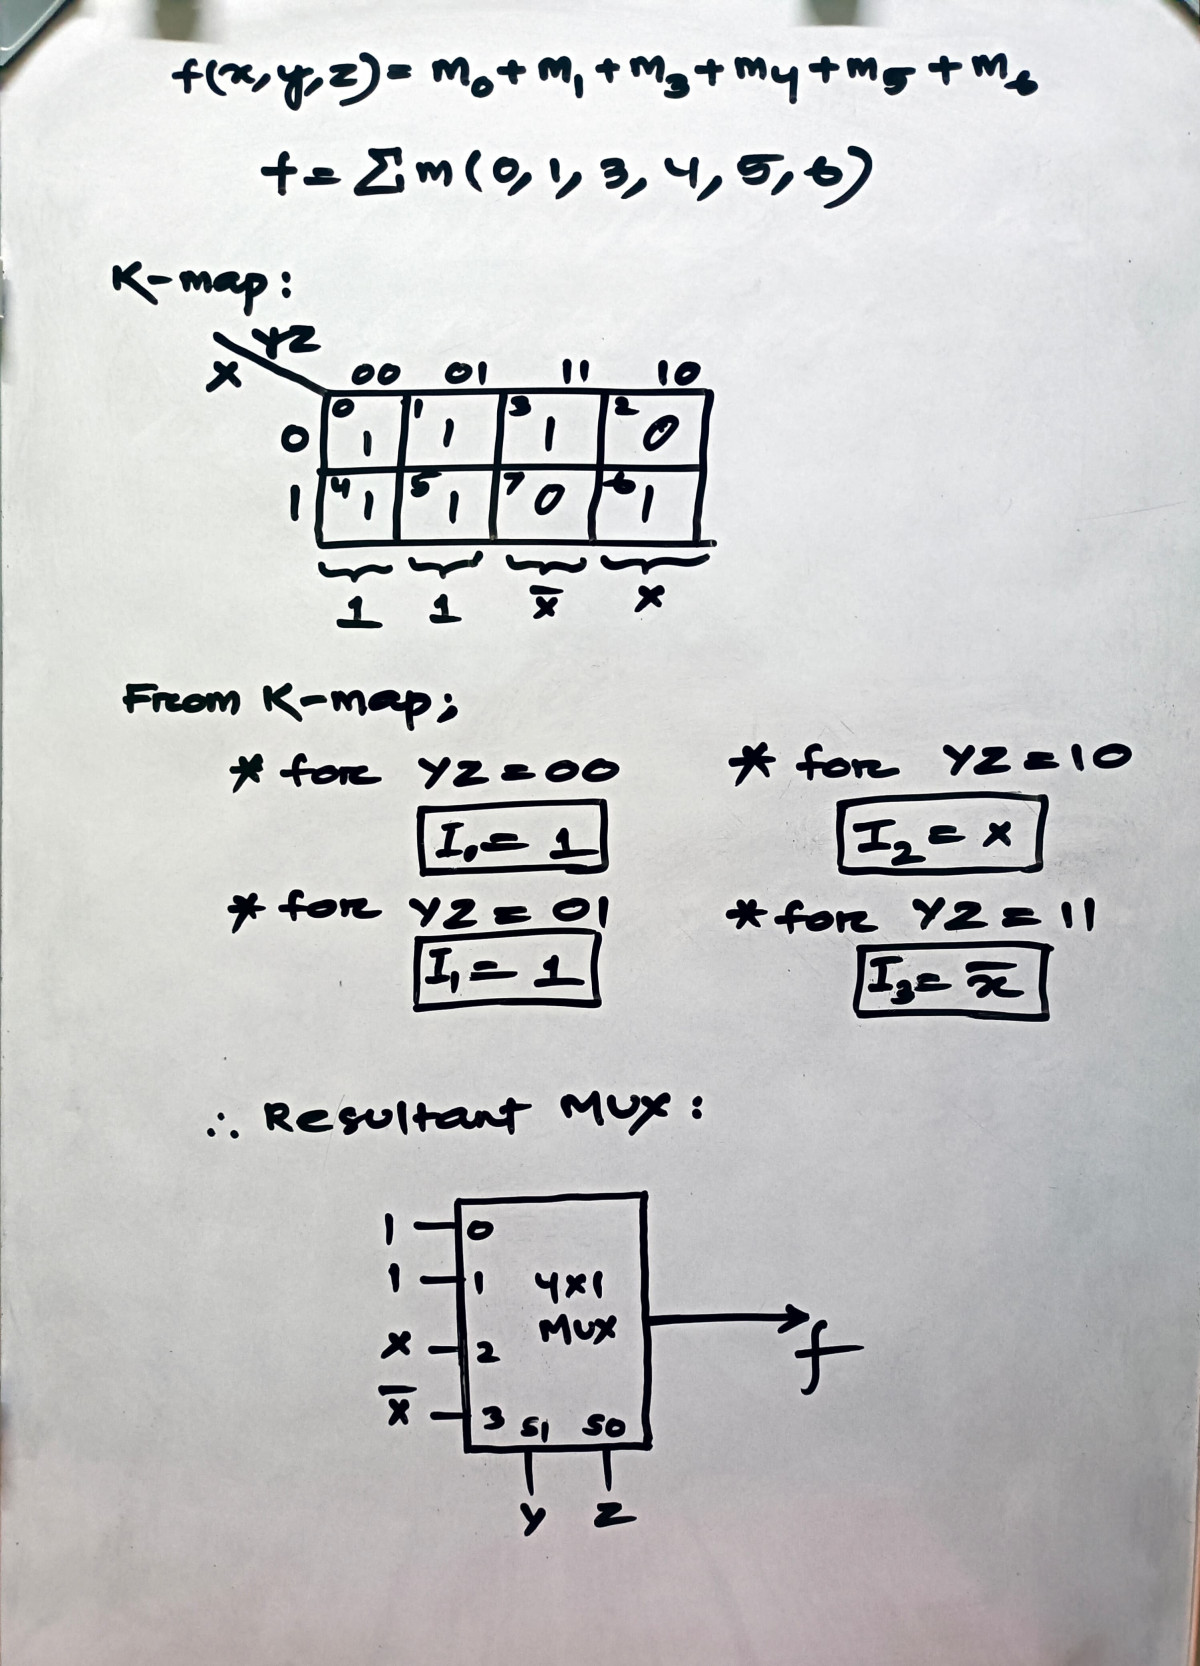 f(x,y,z) = m₀ + m₁ + m₃ + m₄ + m₅ + m₆
f = Σ m (0, 1, 3, 4, 5, 6)
K-map:
YZ
X
00 01 11 10
0 0 1 1 1 3 1 2 0
1 4 1 5 1 7 0 6 1
1 1 x̅ x
From K-map;
* for YZ = 00
I₀ = 1
* for YZ = 01
I₁ = 1
* for YZ = 10
I₂ = x
* for YZ = 11
I₃ = x̅
∴ Resultant MUX:
1 0
1 1 4x1
MUX
X 2
f
X̅ 3 S1 S0
Y Z